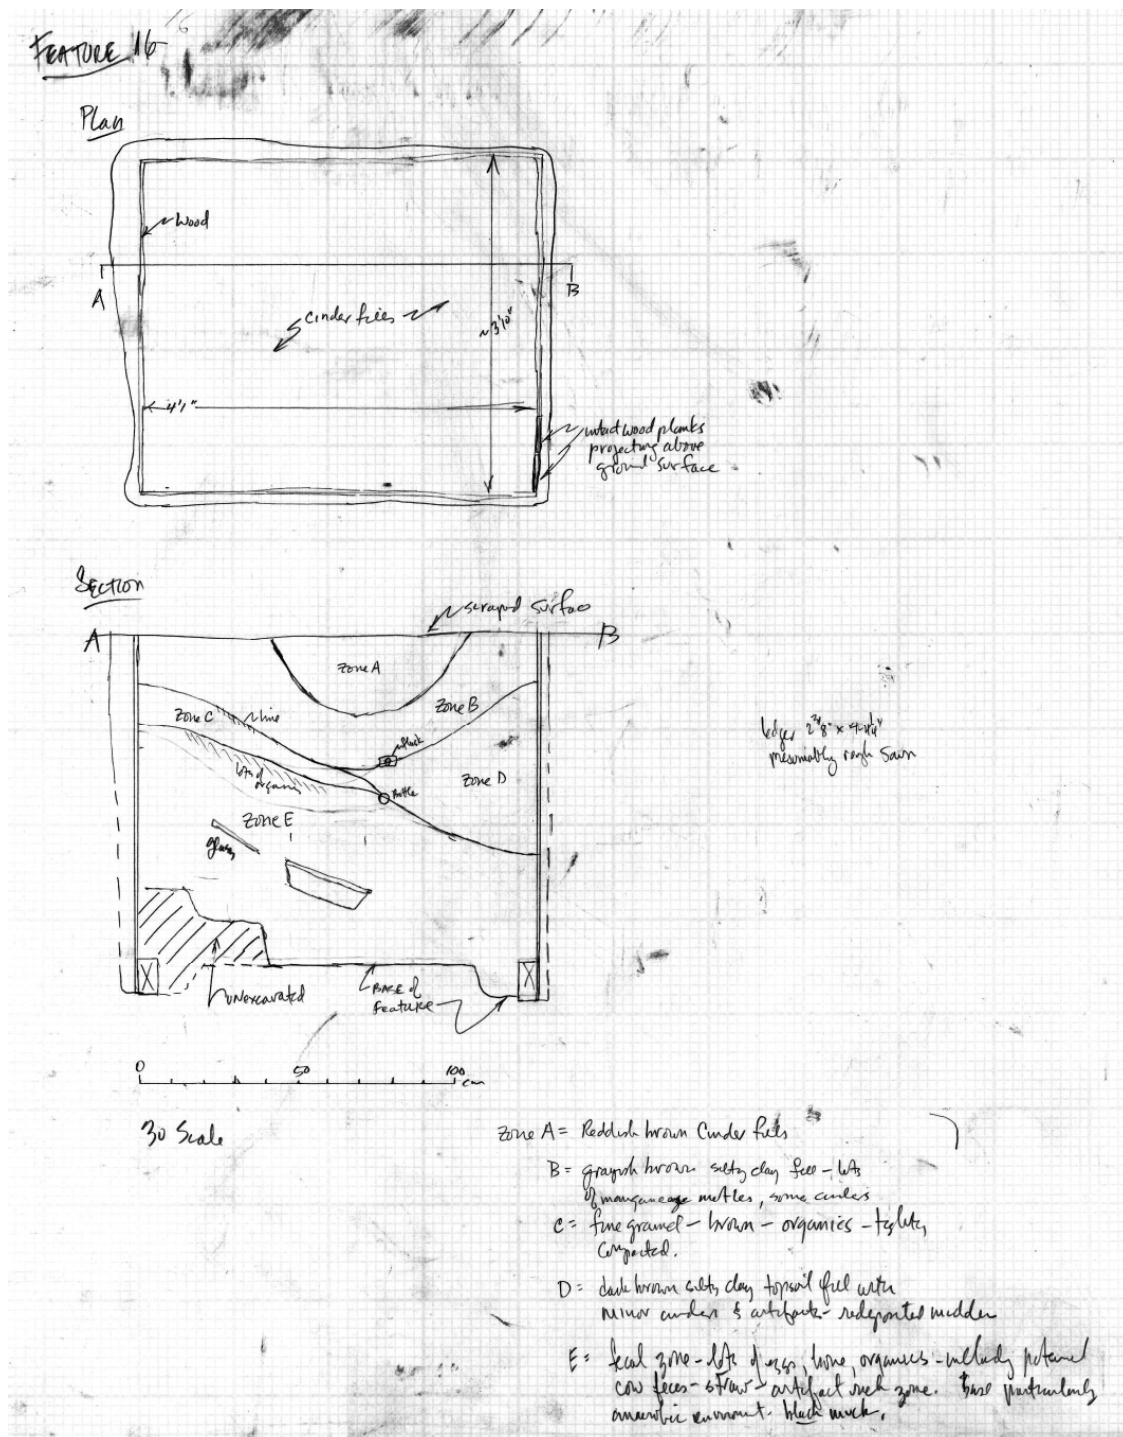 FEATURE 16
Plan
Wood
A
B
cinder fills
~3'10"
4'1"
intact wood planks
projecting above
ground surface
SECTION
scraped surface
A
B
Zone A
Zone B
Zone C
lime
brick
Zone D
lots of
organics
Bottle
Zone E
glass
unexcavated
BASE of
Feature
ledger 2 3/8" x 4
presumably rough sawn
0 50 100
cm
30 Scale
Zone A = Reddish brown Cinder fills
B = grayish brown silty clay fill - lots
of manganese mottles, some cinders
C = fine grained - brown - organics - tightly
compacted.
D = dark brown silty clay topsoil fill with
minor cinders & artifacts - redeposited midden
E = fecal zone - lots of eggs, bone, organics - including
cow feces - straw - artifact rich zone. Base particularly
anaerobic environment - black muck.